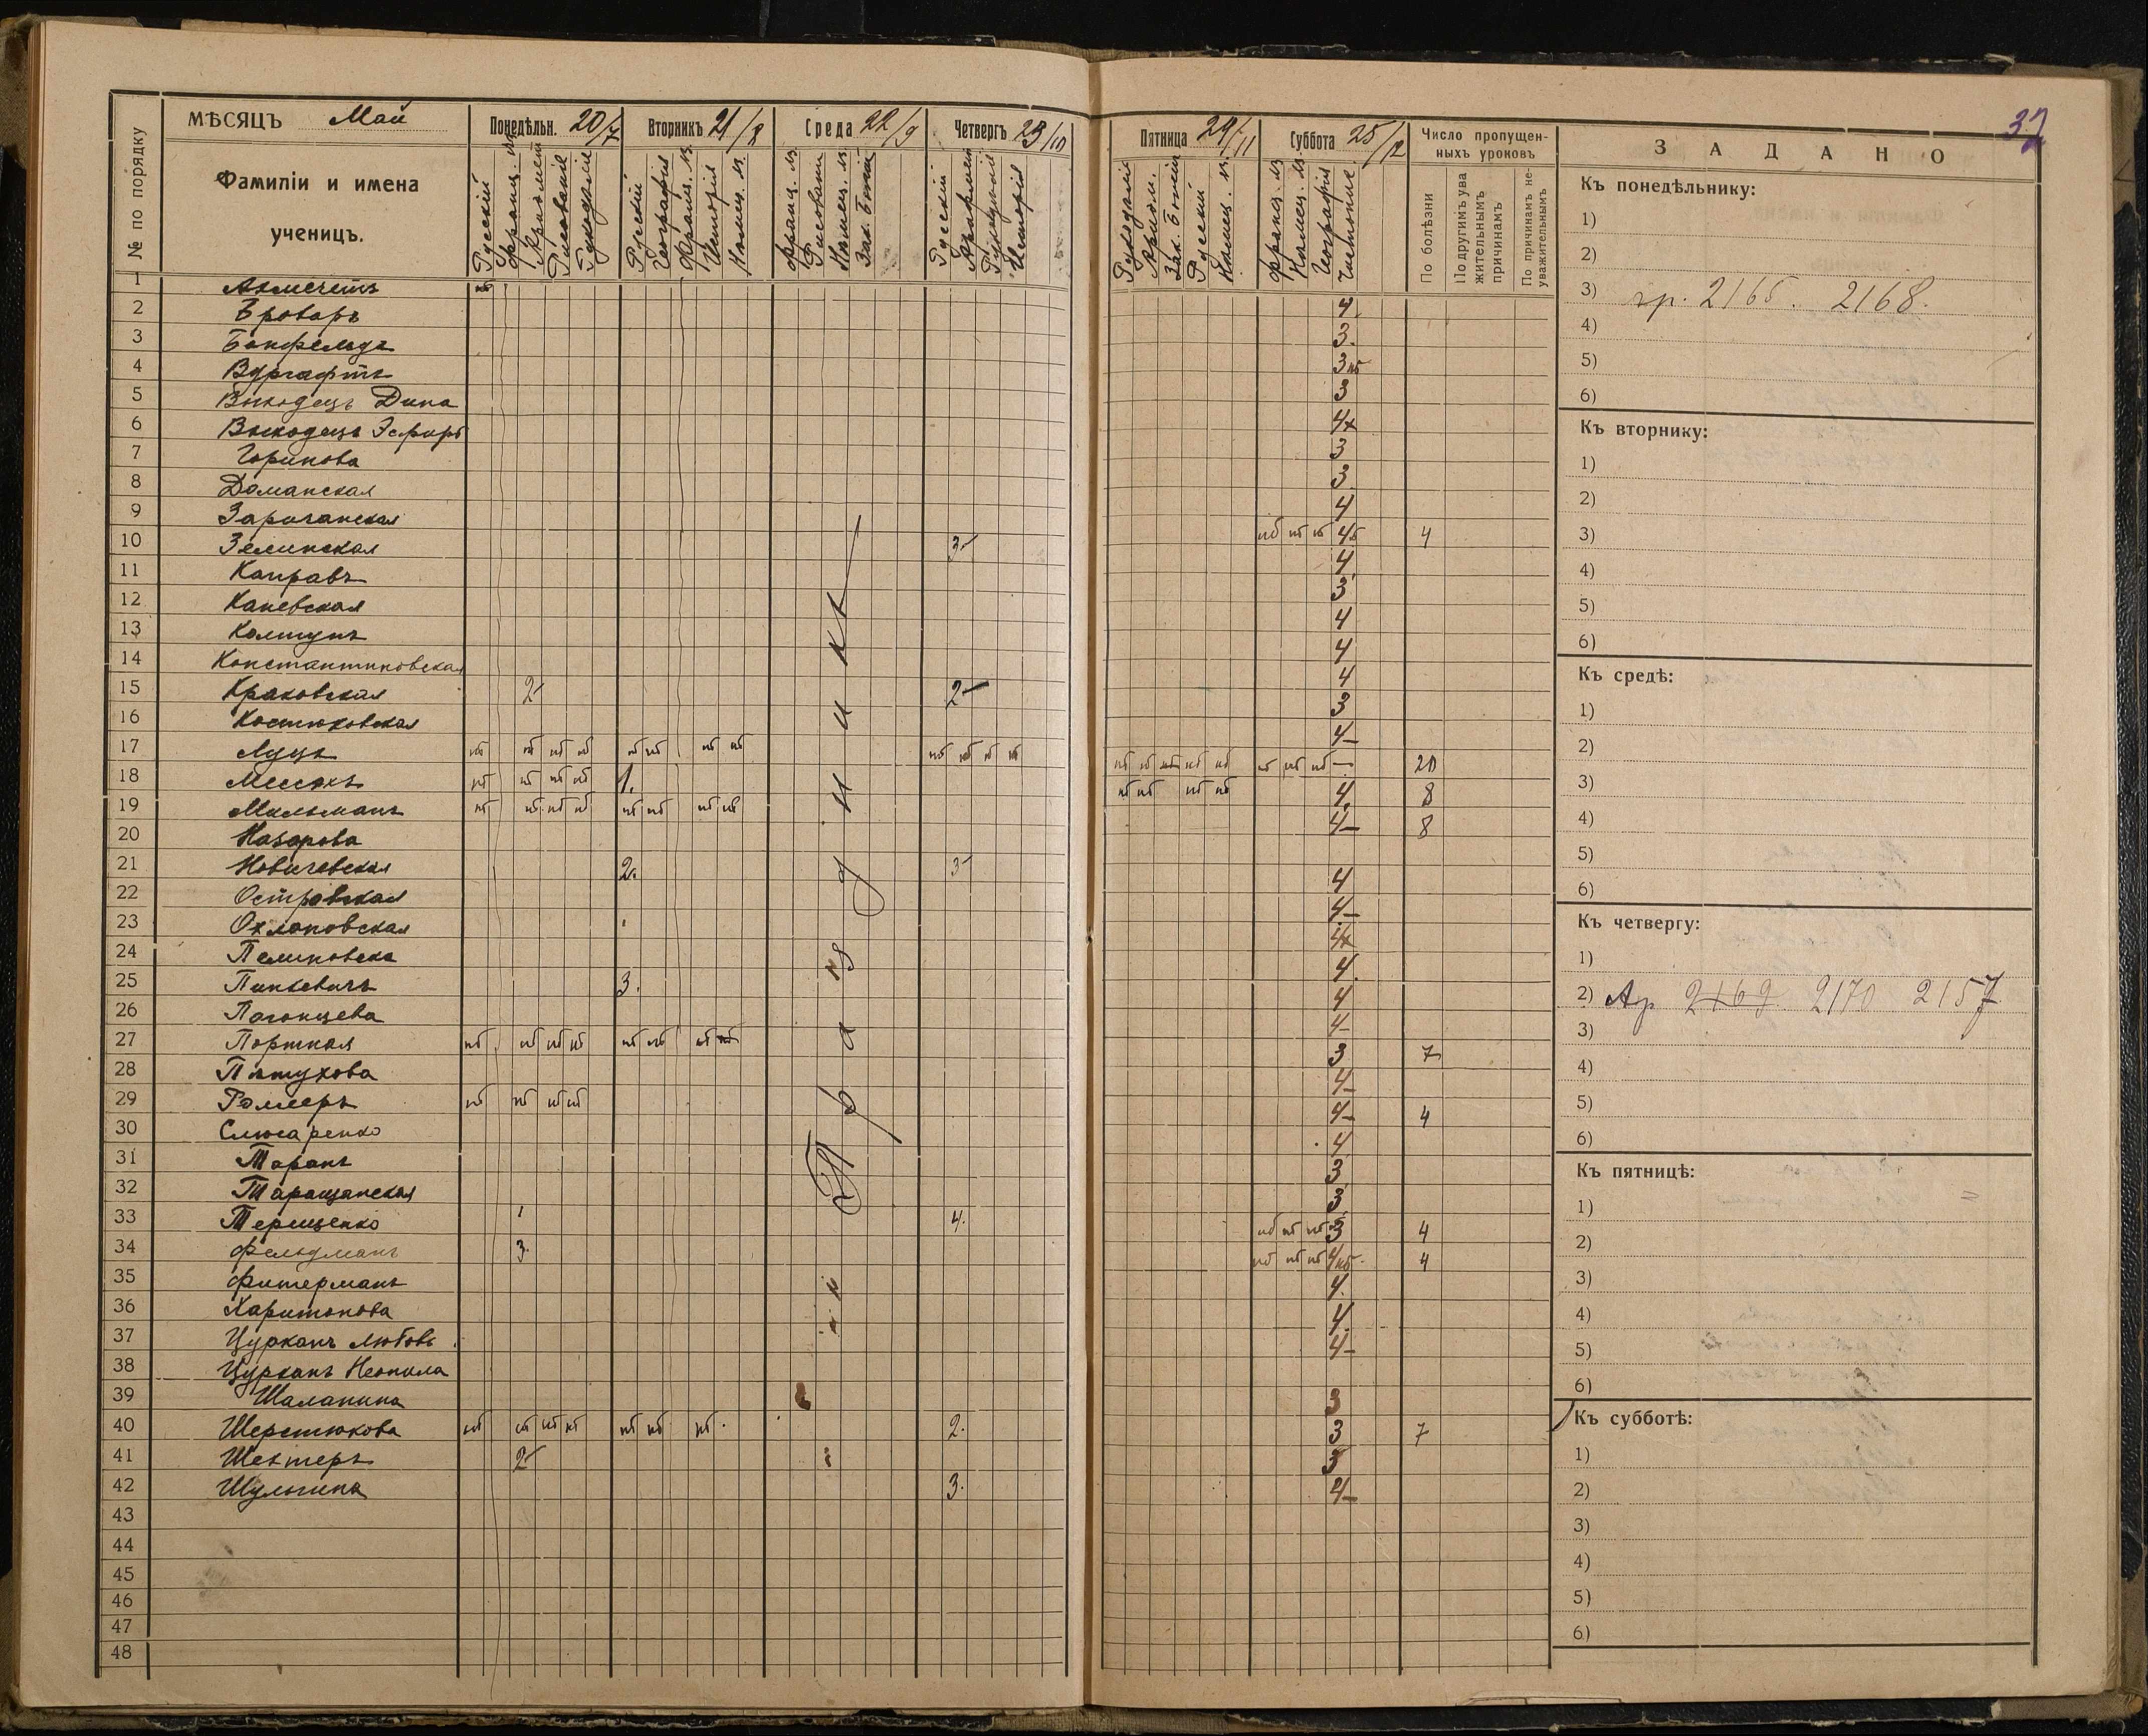 37
№ по порядку
МѢСЯЦЪ Май
Фамиліи и имена
ученицъ.
Понедѣльн. 20/7
Вторникъ 21/8
Среда 22/9
Четвергъ 23/10
Пятница 24/11
Суббота 25/12
Число пропущен-
ныхъ уроковъ
Русскій
Франц. яз
Рисованіе
Рукодѣліе
Русскій
Географія
Франц. яз.
Исторія
Нѣмец. яз.
Франц. яз
Рисованіе
Нѣмец. яз.
Зак. Божій
Русскій
Исторія
Рукодѣліе
Зак. Божій
Русскій
Нѣмец. яз.
Франц. яз
Нѣмец. яз
Географія
Чистопис.
По болѣзни
По другимъ ува
жительнымъ
причинамъ
По причинамъ не-
уважительнымъ
1 Ахмечетъ нб
2 Броваръ 4
3 3.
4 Вургафтъ 3 нб
5 Выходецъ Дина 3
6 Выходецъ Эсфирь 4х
7 Горинова 3
8 Доманская 3
9 Заричанская 4
10 Зелинская 3- нб нб нб 4б 4
11 4
12 Каневская 3
13 Колтунъ 4
14 Константиновская 4
15 Краковская 2- 2- 4
16 Костюковская 3
17 Луцъ нб нб нб нб нб нб нб нб нб нб нб нб 4-
18 нб нб нб нб 1. нб нб нб нб нб нб нб нб 20
19 Мильманъ нб нб нб нб нб нб нб нб нб нб нб нб 4 8
20 Назарова 4- 8
21 Новичевская 2. 3-
22 Островская 4
23 Охлоповская 4-
24 4х
25 Пинкевичъ 3. 4
26 Погонцева 4
27 Портная нб нб нб нб нб нб нб нб 4-
28 Пѣтухова 3 7
29 Роммеръ нб нб нб нб 4-
30 Слюсаренко 4- 4
31 Таранъ 4
32 Таращанская 3
33 Терещенко 4. 3
34 Фельдманъ 3. нб нб нб 3 4
35 Фитерманъ нб нб нб 4 нб 4
36 Харитонова 4.
37 Цурканъ Любовь 4
38 Цурканъ Неонила 4-
39 Шаланина
40 Шерстюкова нб нб нб нб нб нб нб 2. 3
41 Шехтеръ 2- 3 7
42 Шульгина 3. 3
43 4-
44
45
46
47
48
Праздникъ
ЗАДАНО
Къ понедѣльнику:
1)
2)
3) гр. 2165. 2168.
4)
5)
6)
Къ вторнику:
1)
2)
3)
4)
5)
6)
Къ средѣ:
1)
2)
3)
4)
5)
6)
Къ четвергу:
1)
2) Ар 2169 2170 2157
3)
4)
5)
6)
Къ пятницѣ:
1)
2)
3)
4)
5)
6)
Къ субботѣ:
1)
2)
3)
4)
5)
6)